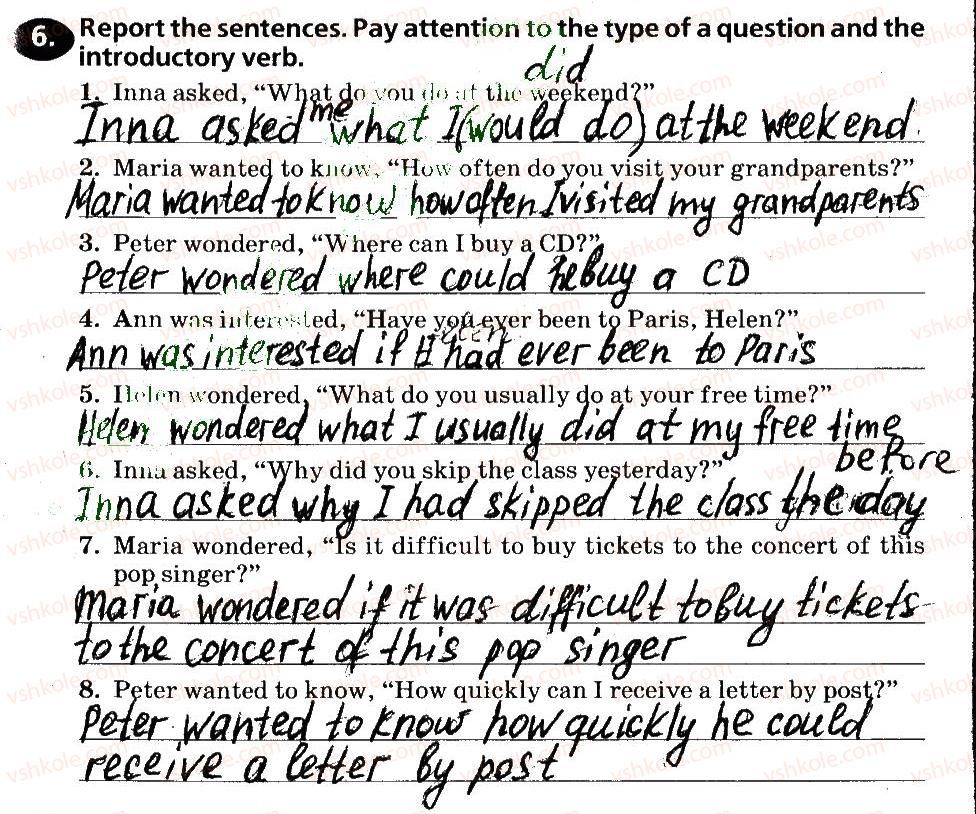 6. Report the sentences. Pay attention to the type of a question and the
introductory verb.
did
1. Inna asked, “What do you do at the weekend?”
me
Inna asked what I (would do) at the weekend.
2. Maria wanted to know, “How often do you visit your grandparents?”
Maria wanted to know how often I visited my grandparents
3. Peter wondered, “Where can I buy a CD?”
Peter wondered where could he buy a CD
4. Ann was interested, “Have you ever been to Paris, Helen?”
Ann was interested if I had ever been to Paris
5. Helen wondered, “What do you usually do at your free time?”
Helen wondered what I usually did at my free time
6. Inna asked, “Why did you skip the class yesterday?”
before
Inna asked why I had skipped the class the day
7. Maria wondered, “Is it difficult to buy tickets to the concert of this
pop singer?”
Maria wondered if it was difficult to buy tickets
to the concert of this pop singer
8. Peter wanted to know, “How quickly can I receive a letter by post?”
Peter wanted to know how quickly he could
receive a letter by post
vshkole.com